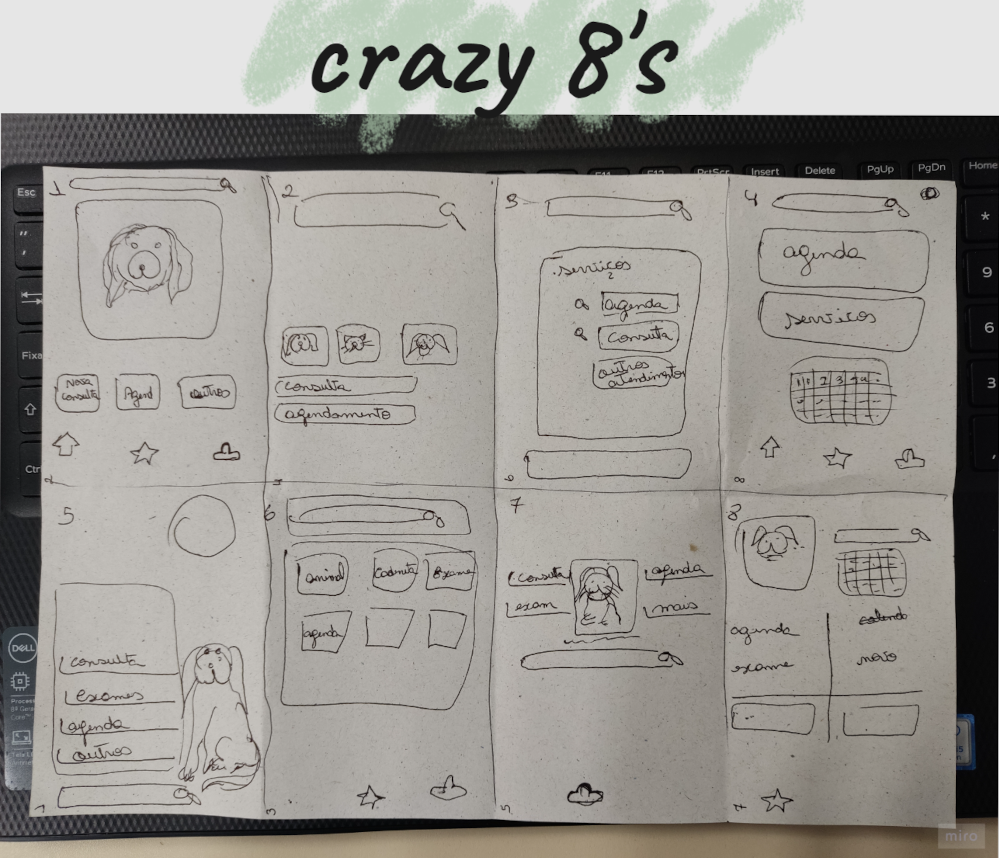 crazy 8's
Esc
F11
F12
PrtScr
Insert
Delete
PgUp
PgDn
Home
1
Nova
consulta
Agend
outros
2
consulta
agendamento
3
serviços
agenda
Consulta
outros
atendimentos
4
agenda
serviços
1 2 3 4
5
consulta
exames
agenda
outros
6
animal
Consulta
Exame
agenda
7
consulta
exam
agenda
mais
8
agenda
exame
novo
*
9
6
3
Fixa
Ctrl
DELL
miro